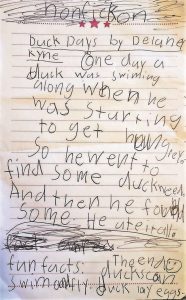 nonfickon
Duck Days by Delana
Kyne One day a
duck was swiming
along when he
was starting
to get hungrey.
So he went to
find some duckweed
And then he found
some. He ate it all.
The end
fun facts: ducks can
swim and fly. duck lay eggs.